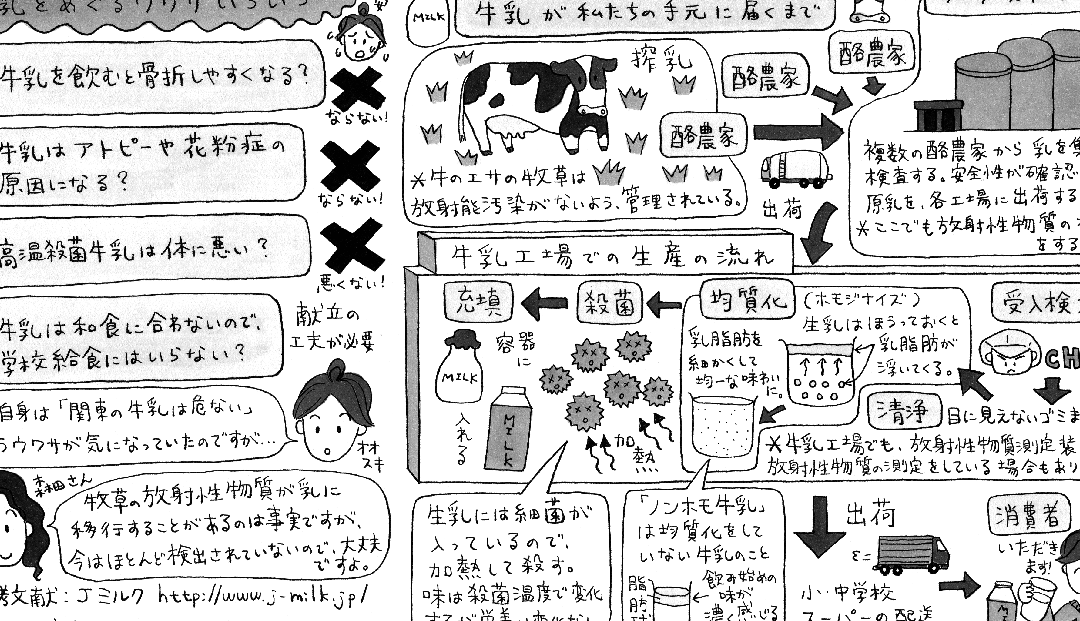 乳をめぐるウワサいろいろ
牛乳を飲むと骨折しやすくなる?
ならない!
牛乳はアトピーや花粉症の
原因になる?
ならない!
高温殺菌牛乳は体に悪い?
悪くない!
牛乳は和食に合わないので、
学校給食にはいらない?
献立の
工夫が必要
自身は「関東の牛乳は危ない」
ウワサが気になっていたのですが…
オオスキ
森田さん
牧草の放射性物質が乳に
移行することがあるのは事実ですが、
今はほとんど検出されていないので、大丈夫
ですよ。
考文献:Jミルク http://www.j-milk.jp/
MILK
牛乳が私たちの手元に届くまで
搾乳
酪農家
酪農家
酪農家
*牛のエサの牧草は
放射能汚染がないよう、管理されている。
出荷
複数の酪農家から乳を集
検査する。安全性が確認
原乳を、各工場に出荷する
*ここでも放射性物質の
をする
牛乳工場での生産の流れ
充填
殺菌
均質化
(ホモジナイズ)
受入検
容器
に
MILK
入れる
MILK
加熱
乳脂肪を
細かくして
均一な味わい
に。
生乳はほうっておくと
乳脂肪が
浮いてくる。
CH
清浄
目に見えないゴミま
*牛乳工場でも、放射性物質測定装
放射性物質の測定をしている場合もあり
生乳には細菌が
入っているので、
加熱して殺す。
味は殺菌温度で変化
「ノンホモ牛乳」
は均質化をして
いない牛乳のこと
脂肪
飲み始めの
味が
濃く感じる
出荷
小・中学校
スーパーへの配送
消費者
いただき
ます!
MILK